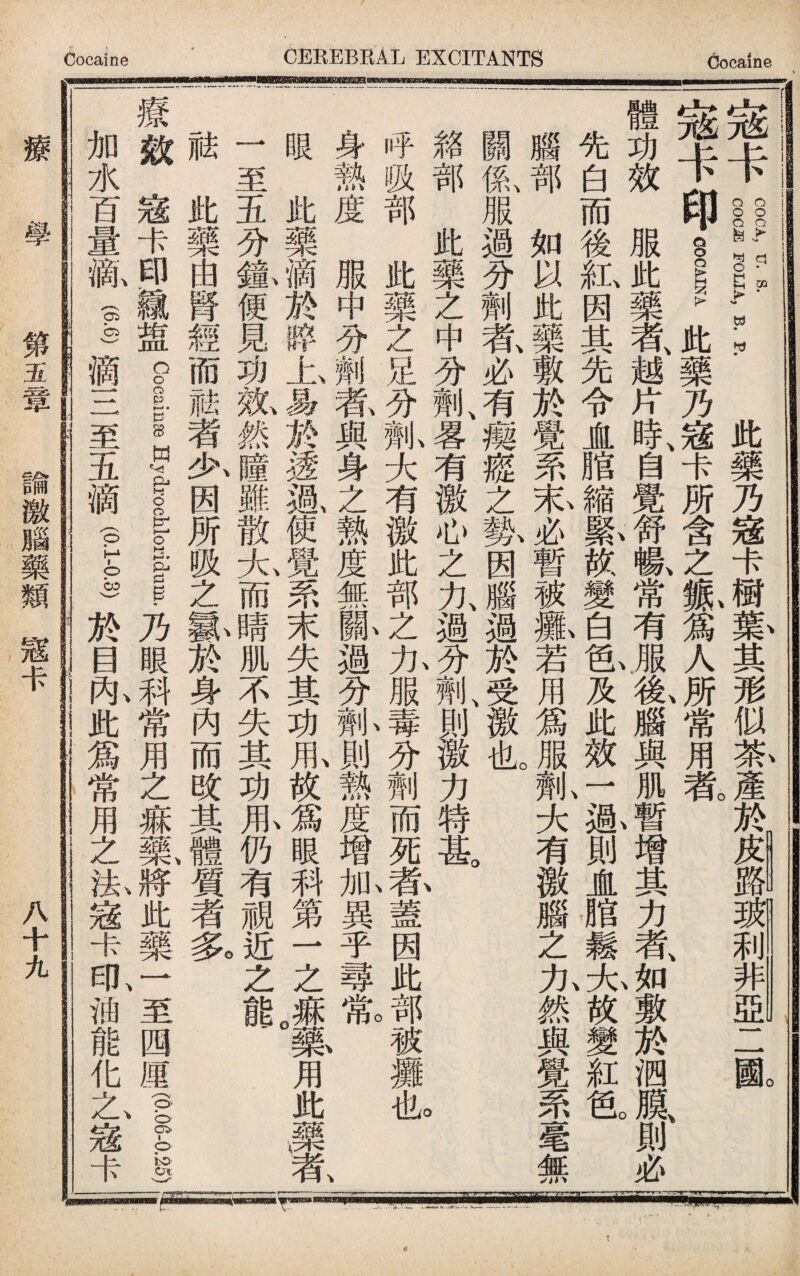 Cocaine
CEREBRAL EXCITANTS
Cocaine
寇卡 COCA, U. S. COCÆ FOLIA, B. P. 此藥乃寇卡樹葉、其形似茶、產於皮路玻利非亞二國。
寇卡印 COCAINA 此藥乃寇卡所含之、爲人所常用者。
體功效 服此藥者、越片時、自覺舒暢、常有服後、腦與肌暫增其力者、如敷於泗膜、則必
先白而後紅、因其先令血脜縮緊、故變白色、及此效一過、則血脜鬆大、故變紅色。
腦部 如以此藥敷於覺系末、必暫被癱、若用爲服劑、大有激腦之力、然與覺系毫無
關係、服過分劑者、必有瘈瘲之勢、因腦過於受激也。
絡部 此藥之中分劑、畧有激心之力、過分劑、則激力特甚。
呼吸部 此藥之足分劑、大有激此部之力、服毒分劑而死者、蓋因此部被癱也。
身熱度 服中分劑者、與身之熱度無關、過分劑、則熱度增加、異乎尋常。
眼 此藥滴於睟上、易於透過、使覺系末失其功用、故爲眼科第一之麻藥、用此藥者、
一至五分鐘、便見功效、然瞳雖散大、而睛肌不失其功用、仍有視近之能。
祛 此藥由腎經而祛者少、因所吸之、於身內而改其體質者多。
療效 寇卡印塩 Cocainæ Hydrochloridum. 乃眼科常用之麻藥、將此藥一至四厘 (0.06-0.25)
加水百量滴、(6.6) 滴三至五滴 (0.1-0.3) 於目內、此爲常用之法、寇卡印、油能化之、寇卡
療學 第五章 論激腦藥類 寇卡 八十九